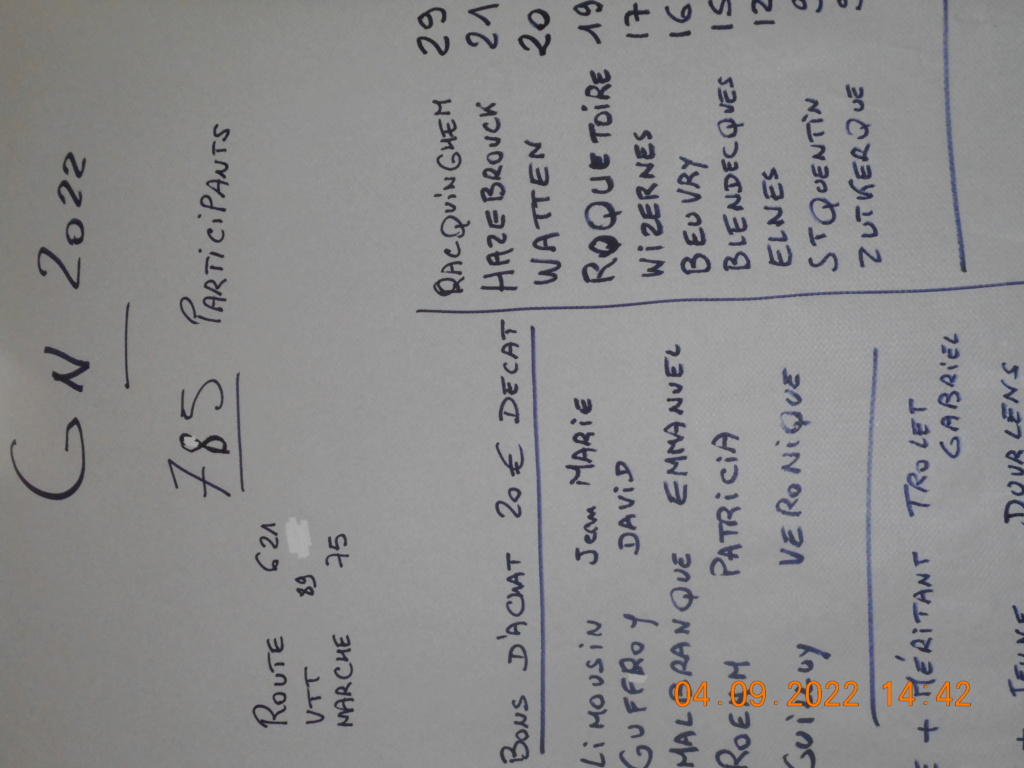 GN 2022
785 PARTICIPANTS
ROUTE 621
VTT 89
MARCHE 75
BONS D'ACHAT 20€ DECAT
LIMOUSIN Jean MARIE
GUFFROY DAVID
MALBRANQUE EMMANUEL
ROEHM PATRICIA
VERONIQUE
+ MÉRITANT TROLET
GABRIEL
DOURLENS
RACQUINGHEM 29
HAZEBROUCK 21
WATTEN 20
ROQUETOIRE 19
WIZERNES 17
BEUVRY 16
BLENDECQUES 15
ELNES 12
ST QUENTIN
ZUTKERQUE
04.09.2022 14:42